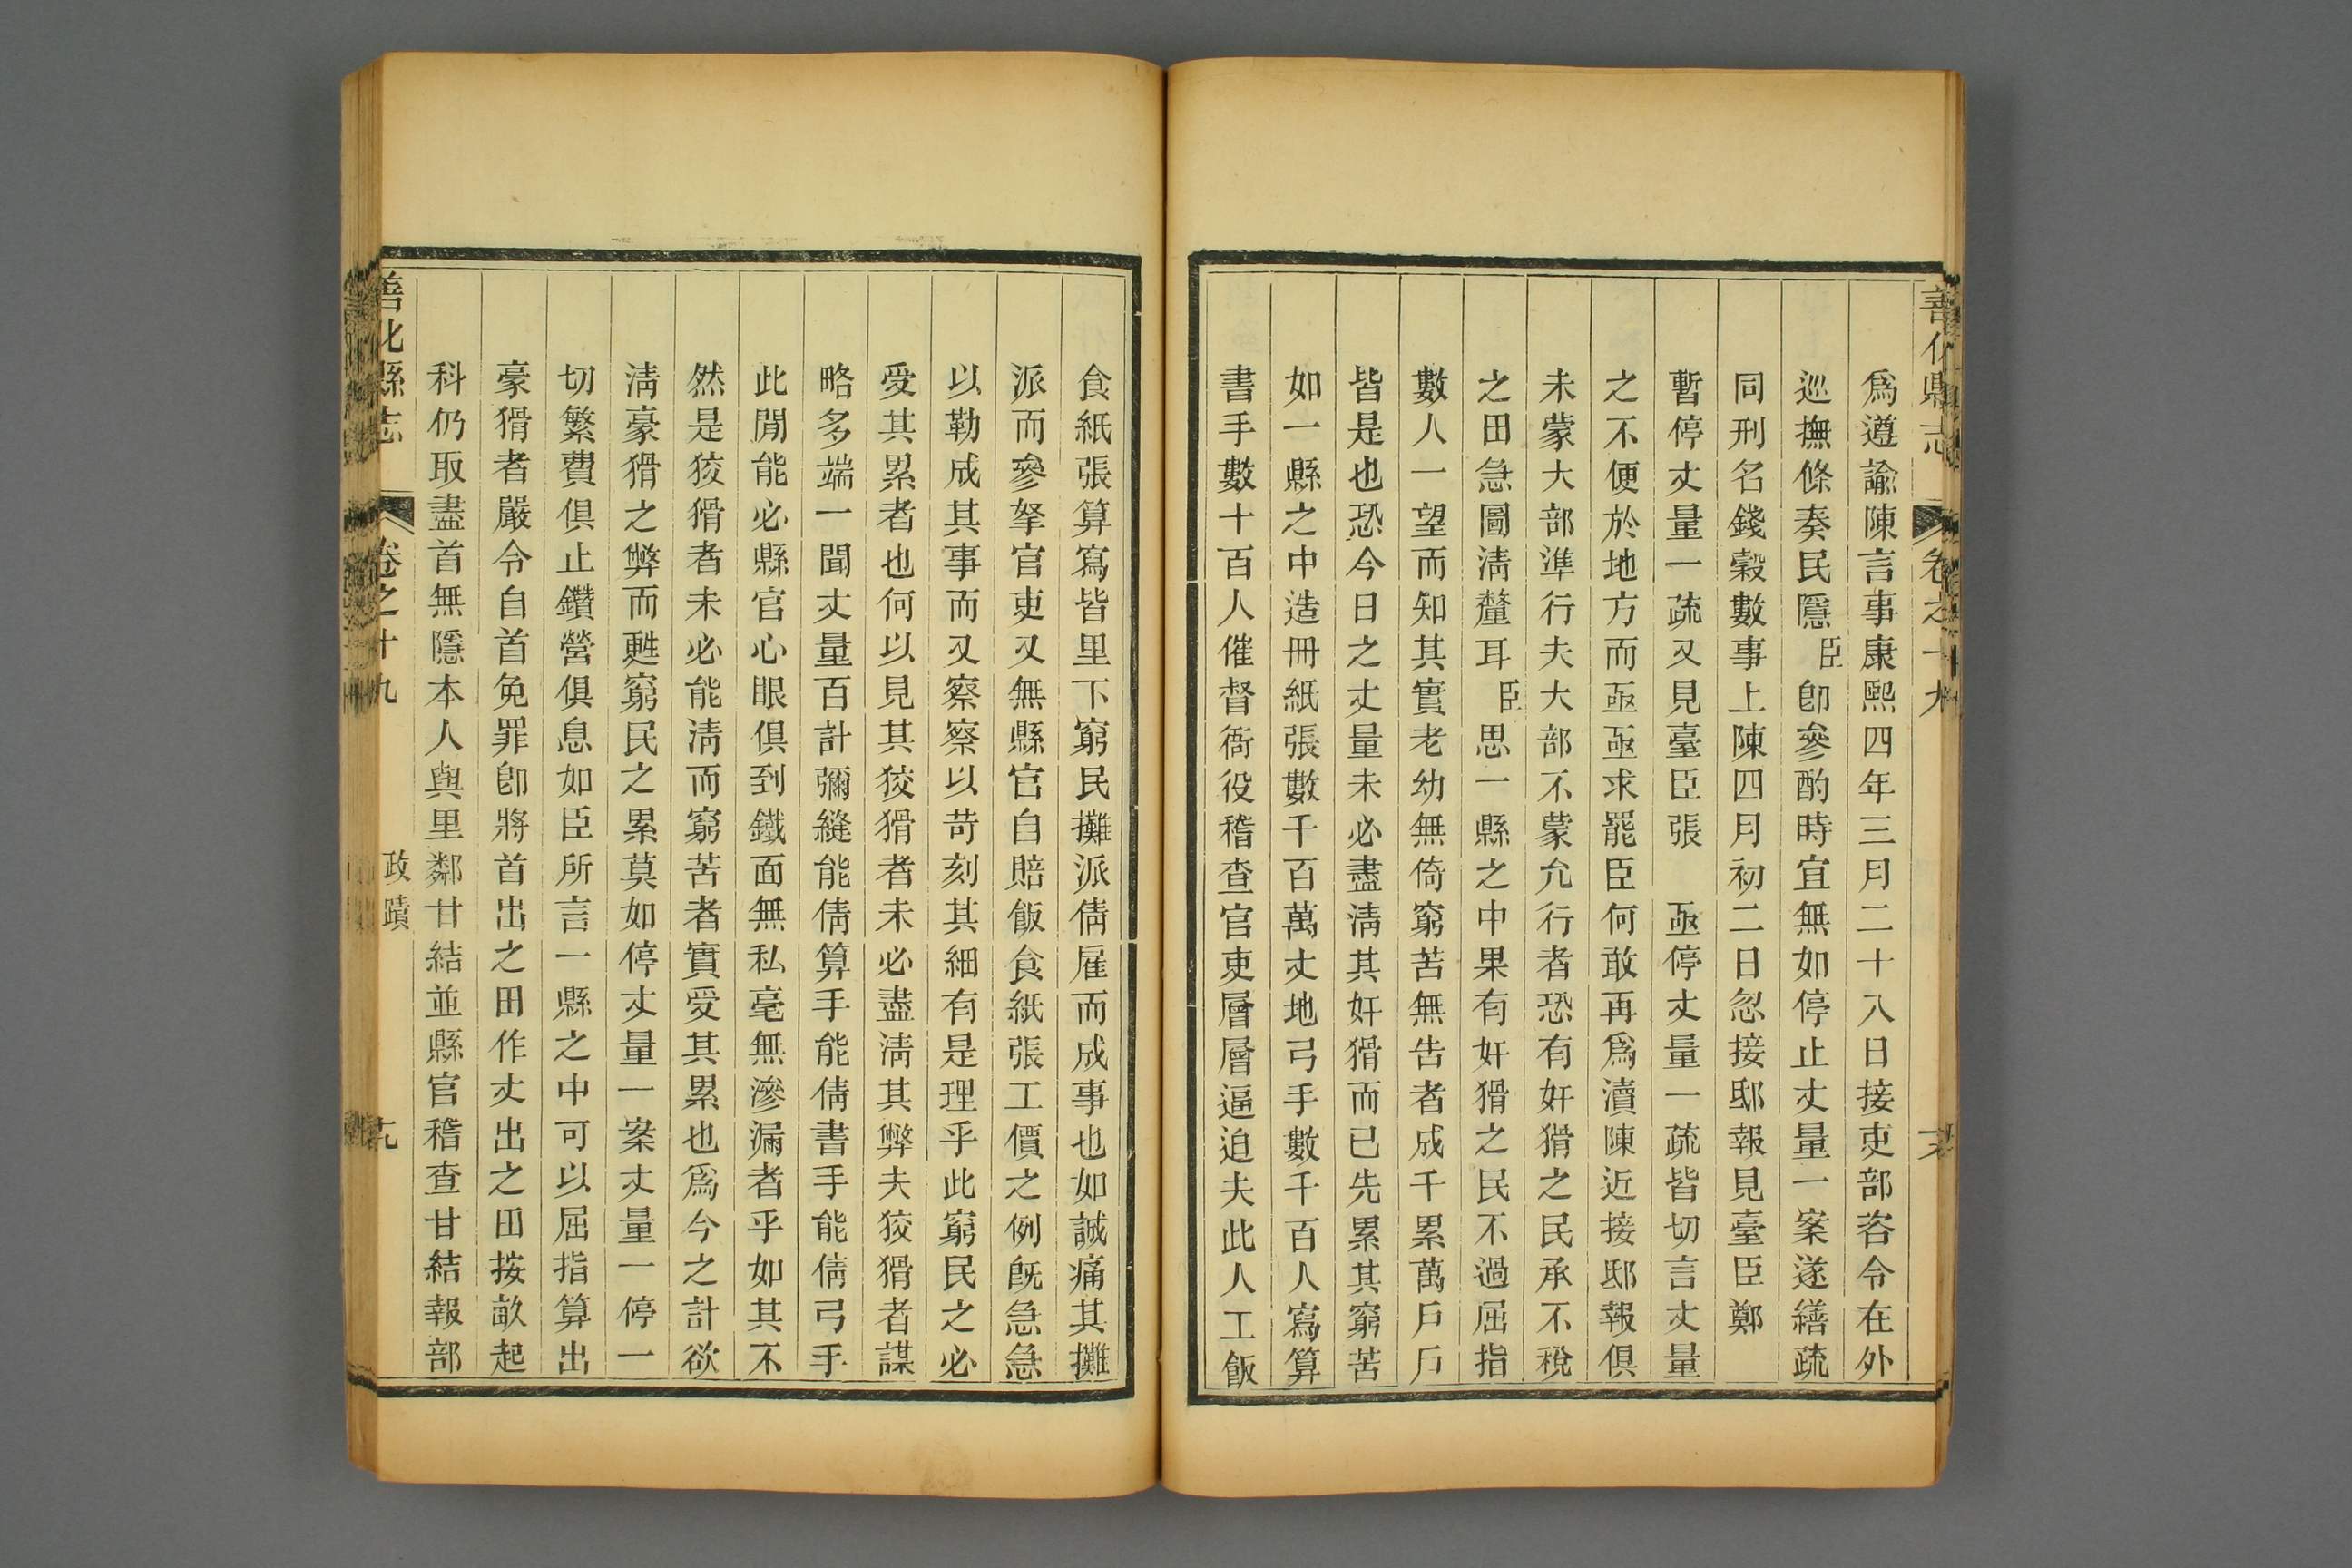 善化縣志 卷之十九
爲遵諭陳言事康熙四年三月二十八日接吏部咨令在外
巡撫條奏民隱臣卽參酌時宜無如停止丈量一案遂繕疏
同刑名錢穀數事上陳四月初二日忽接邸報見臺臣鄭
暫停丈量一疏又見臺臣張 亟停丈量一疏皆切言丈量
之不便於地方而亟亟求罷臣何敢再爲瀆陳近接邸報俱
未蒙大部準行夫大部不蒙允行者恐有奸猾之民承不稅
之田急圖淸釐耳臣思一縣之中果有奸猾之民不過屈指
數人一望而知其實老幼無倚窮苦無告者成千累萬戶戶
皆是也恐今日之丈量未必盡淸其奸猾而已先累其窮苦
如一縣之中造冊紙張數千百萬丈地弓手數千百人寫算
書手數十百人催督衙役稽查官吏層層逼迫夫此人工飯
食紙張算寫皆里下窮民攤派倩雇而成事也如誠痛其攤
派而參拏官吏又無縣官自賠飯食紙張工價之例旣急急
以勒成其事而又察察以苛刻其細有是理乎此窮民之必
受其累者也何以見其狡猾者未必盡淸其弊夫狡猾者謀
略多端一聞丈量百計彌縫能倩算手能倩書手能倩弓手
此閒能必縣官心眼俱到鐵面無私毫無滲漏者乎如其不
然是狡猾者未必能淸而窮苦者實受其累也爲今之計欲
淸豪猾之弊而甦窮民之累莫如停丈量一案丈量一停一
切繁費俱止鑽營俱息如臣所言一縣之中可以屈指算出
豪猾者嚴令自首免罪卽將首出之田作丈出之田按畝起
科仍取盡首無隱本人與里鄰甘結並縣官稽查甘結報部
善化縣志 卷之十九 政蹟